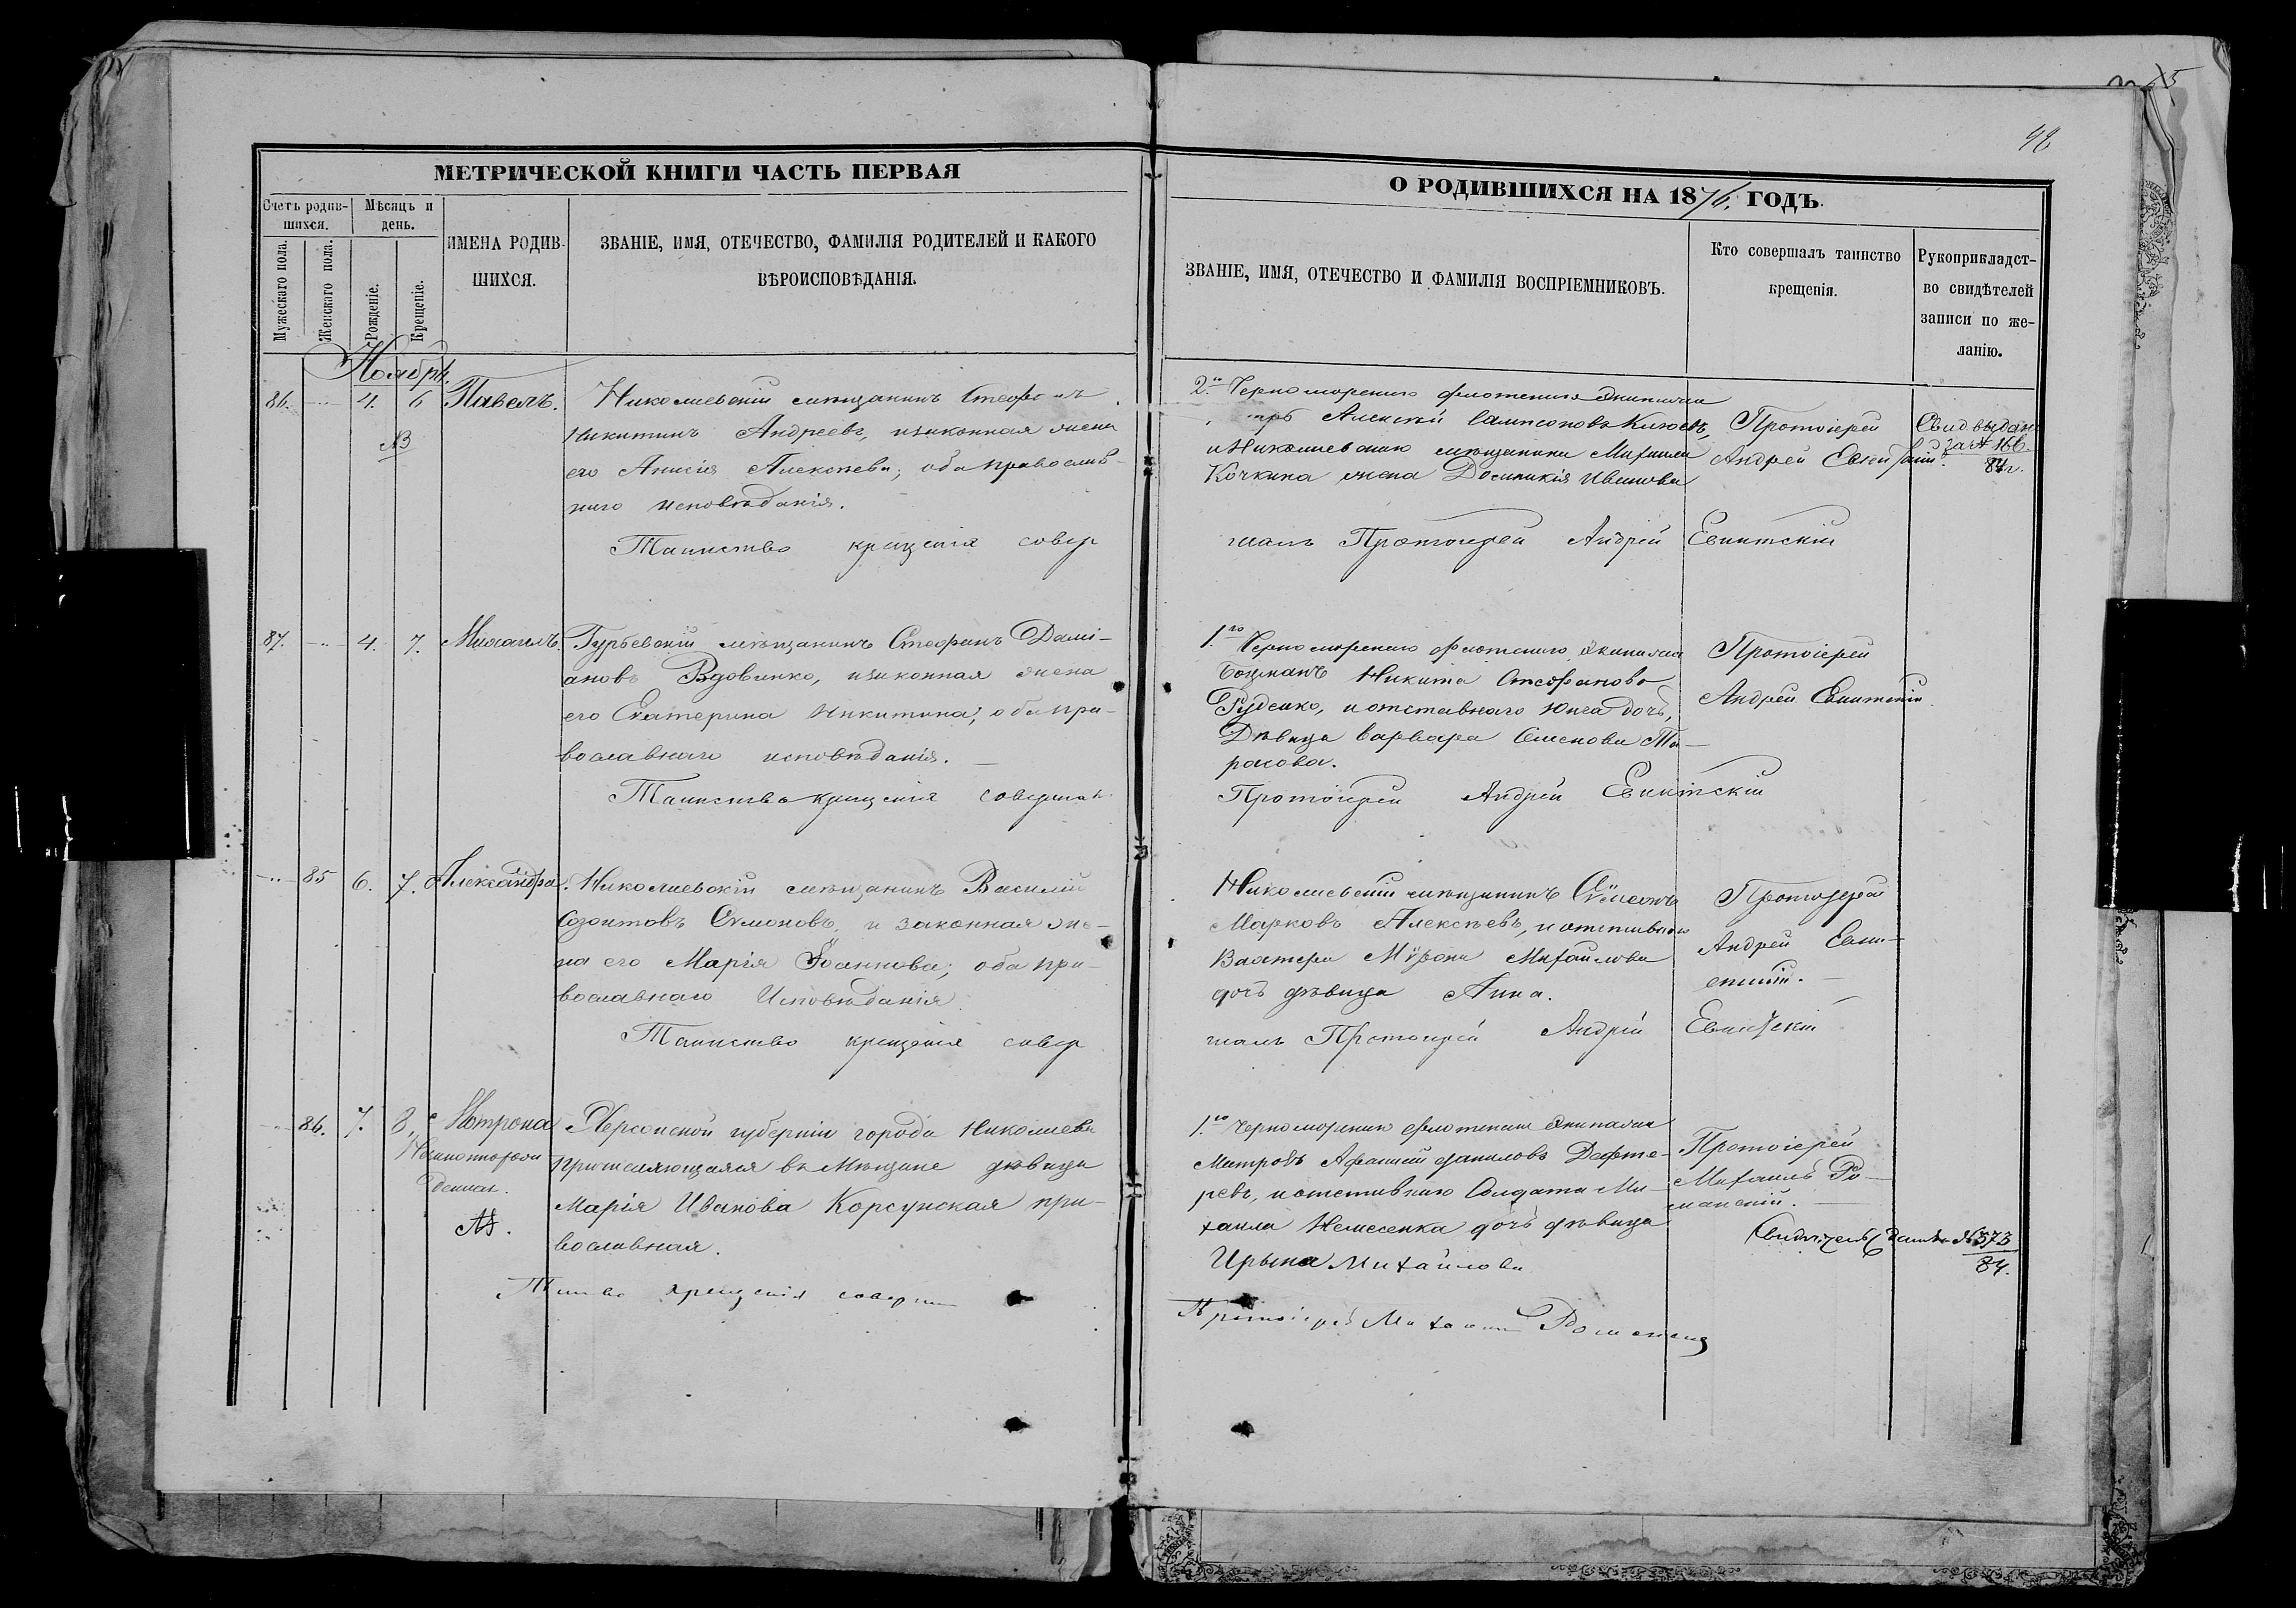 98
МЕТРИЧЕСКОЙ КНИГИ ЧАСТЬ ПЕРВАЯ
Счетъ родив-
шихся.
Мѣсяцъ и
день.
Мужескаго пола.
Женскаго пола.
Рожденіе.
Крещеніе.
ИМЕНА РОДИВ-
ШИХСЯ.
ЗВАНІЕ, ИМЯ, ОТЕЧЕСТВО, ФАМИЛІЯ РОДИТЕЛЕЙ И КАКОГО
ВѢРОИСПОВѢДАНІЯ.
О РОДИВШИХСЯ НА 1876. ГОДЪ.
ЗВАНІЕ, ИМЯ, ОТЕЧЕСТВО И ФАМИЛІЯ ВОСПРІЕМНИКОВЪ.
Кто совершалъ таинство
крещенія.
Рукоприкладст-
во свидѣтелей
записи по же-
ланію.
Ноябрь.
86. 4. 6 Павелъ.
Николаевскій мѣщанинъ Стефанъ
Никитинъ Андреевъ, и законная жена
его Анисія Алексѣева; оба православ-
наго исповѣданія.
Таинство крещенія совер
2.го Черноморскаго флотскаго экипажа
Алексѣй Сампсоновъ
и Николаевскаго мѣщанина Михаила
Кочкина жена Домникія Иванова
шалъ Протоіерей Андрей Евнитскій
Протоіерей
Андрей
Свид выдан
за № 166
84 г.
87. 4. 7. Михаилъ.
Гурьевскій мѣщанинъ Стефанъ Дамі-
ановъ Вдовинко, и законная жена
его Екатерина Никитина; оба пра-
вославнаго исповѣданія.
Таинство крещенія совершалъ
1.го Черноморскаго флотскаго экипажа
Боцманъ Никита Стефановъ
Руденко, и отставнаго дочь,
Дѣвица Варвара Семенова Та-
расова.
Протоіерей Андрей Евнитскій
Протоіерей
Андрей Евнитскій.
85 6. 7. Александра.
Николаевскій мѣщанинъ Василій
Созонтовъ и законная же-
на его Марія Іоаннова; оба пра-
вославнаго Исповѣданія
Таинство крещенія совер
Николаевскій мѣщанинъ Сѵмеонъ
Марковъ Алексѣевъ, и отставнаго
Вахтера Мѵрона Михайлова
дочь дѣвица Анна.
шалъ Протоіерей Андрей Евнитскій
Протоіерей
Андрей Евни-
тскій.
86. 7. 8. Матрона
Незаконнорож
денная.
Херсонской губерніи города Николаева
причисляющаяся въ Мѣщане дѣвица
Марія Иванова Корсунская пра-
вославная.
крещенія соверш
1.го Черноморскаго флотскаго экипажа
Матросъ Афанасій Даниловъ Дехте-
ревъ, и отставнаго Солдата Ми-
хаила дочь дѣвица
Ирына Михайлова
Протоіерей Михаилъ Романскій
Протоіерей
Михаилъ Ро-
манскій.
№ 573
84.